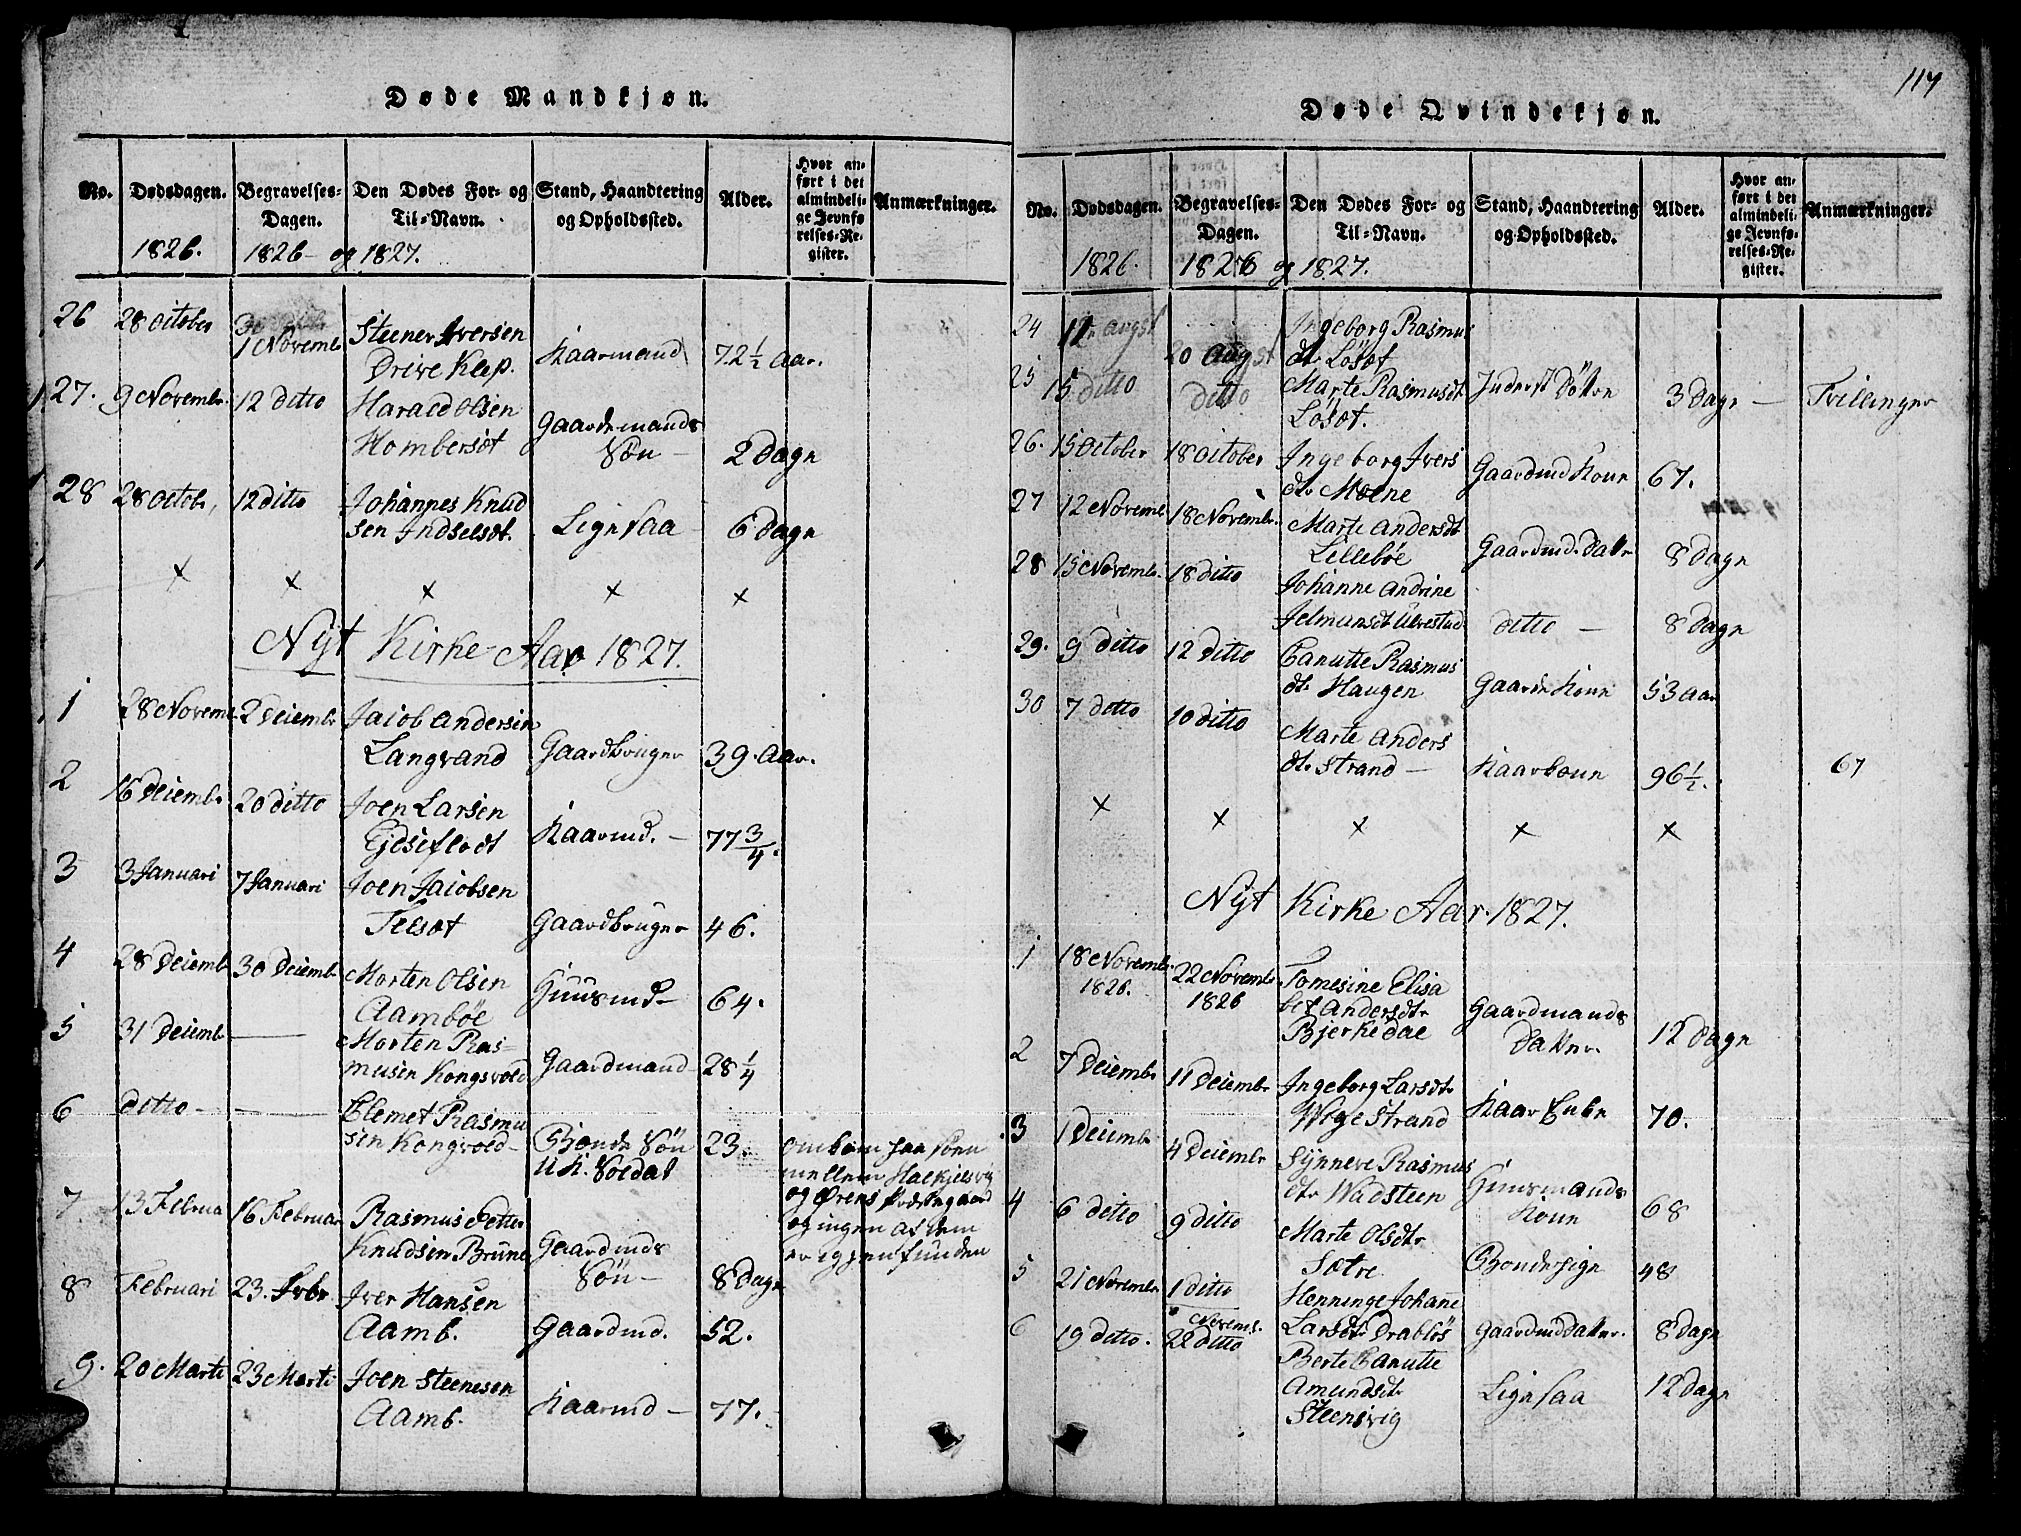 Døde Mandkjøn.
No. Dødsdagen. Begravelses-Dagen. Den Dødes For- og Til-Navn. Stand, Haandtering og Opholdssted. Alder. Hvor anført i det almindelige Jevnførelses-Register. Anmærkninger.
1826. 1826 - og 1827.
26 28 October 1 Novemb Steener Iversen
Drive Klep. Kaarmand 72½ Aar.
27. 9 Novembr. 12 Ditto Harald Olsen
Hombersæt Gaardemands
Søn - 2 Dage
28 28 Octobr, 12 Ditto Johannes Knud
sen Indselsæt. Ligesaa 6 Dage
x x x x x
Nyt Kirke-Aar 1827.
1 28 Novemb. 2 Decembr Jacob Andersen
Langvand Gaardbruger 39. Aar.
2 16 Decembr 20 Ditto Joen Larsen
Kaarmd. - 77¾.
3 3 Januari 7 Januari Joen Jacobsen
Gaardbruger 46.
4 28 Decemb 30 Decembr Morten Olsen
Aambøe Huusmd- 64.
5 31 Decemb — Morten Ras-
musen Kongsvold Gaardmand 28¼
6 ditto - — Clemet Rasmu
sen Kongvold- Bonde Søn 23. omkom paa Søen
Soldat mellem Halkjelsvig
og Ørens Præstegaard
og ingen af dem
er igjen funden
7. 13 Februa 16 Februar Rasmus Petter
Knudsen Brune Gaardmds
Søn- 8 Dage
8 Februari 23. Febr. Iver Hansen
Aamb. Gaardmd. 52.
9. 20 Marti 23 Marti Joen Steenesen
Aamb. Kaarmd - 77.
117
Døde Qvindekjøn.
No. Dødsdagen. Begravelses-Dagen. Den Dødes For- og Til-Navn. Stand, Haandtering og Opholdssted. Alder. Hvor anført i det almindelige Jevnførelses-Register. Anmærkninger.
1826. 1826 og 1827.
24 Augst 20 Augst Ingeborg Rasmus
dtr Løsæt
25 15 ditto ditto Marte Rasmusdt
Løsæt. Inderst Døtre 3 Dage — Tvillinger
26. 15 October 18 October Ingeborg Ivers
dtr Moene Gaardmd Kone 67.
27 12 Novemb 18 Novembr. Marte Andersdt
Lillebøe Gaardmds Datter 8 Dage
28 15 Novemb. 18 ditto Johanne Andrine
ditto — 8 Dage
29. 9 Ditto 12 Ditto Canutte Rasmus
dtr Haugen Gaarde Kone 53 Aar
30 7 ditto 10 ditto Marte Anders
dtr Strand — Kaarkone 96½. 67
x x x x x
Nyt Kirke Aar. 1827.
1 18 Novembr. 22 Novembr Tomesine Elisa
1826. 1826 bet Andersdtr Gaardmands
Bjerkedal Datter. 12 Dage
2 7 Decembr 11 Decembr Ingeborg Larsdtr
Strand Kaar Enke 70.
3 1 Decembr 4 Decembr Synneve Rasmus
dtr Wadsteen Huusmands
Kone 68
4 6 ditto 9 ditto Marte Olsdtr
Sætre Bondepige 48
5 21 Novembr 1 ditto Henninge Johanne
Larsdt Drabløs Gaardmd Datter. 8 Dage
6 19 ditto. Novemb. 22 ditto Berte Canutte
Amundsdtr
Steensvig Ligesaa 12 Dage